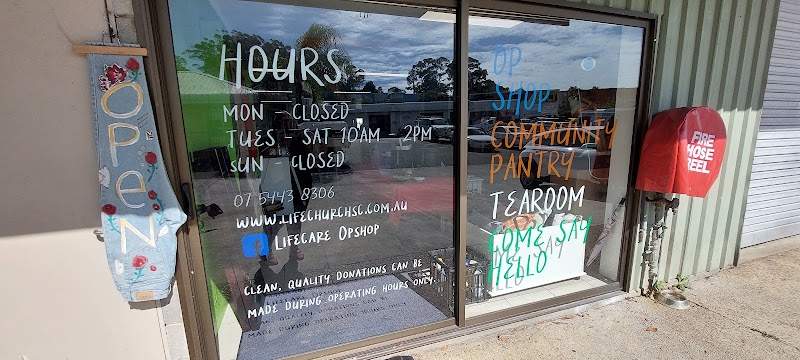 OPEN
HOURS
MON - CLOSED
TUES - SAT 10AM - 2PM
SUN - CLOSED
07 5443 8306
WWW.LIFECHURCHSC.COM.AU
f LIFECARE OPSHOP
CLEAN, QUALITY DONATIONS CAN BE
MADE DURING OPERATING HOURS ONLY.
OP
SHOP
COMMUNITY
PANTRY
TEAROOM
COME SAY
HELLO
FIRE
HOSE
REEL